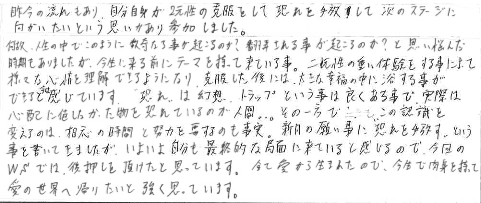 昨今の流れもあり、自分自身が2元性の克服をして恐れを手放して次のステージに
向かいたいという思いがあり参加しました。
何故、人生の中でこのように数奇なる事が起こるのか？翻弄される事が起こるのか？と思い悩んだ
時期もありましたが、今世に来る前にテーマを持って来ている事。二元性の重い体験をする事によって
様々な心情を理解できるようになり、克服した後には、大きな幸福の中に浴する事が
できると感じています。"恐れ"は幻想、トラップという事は良くある事で、実際は
心配に値しなかった物を恐れているのが人間…。その一方で この認識を
変えるのは、相応の時間と努力を要するのも事実。新月の願い事に恐れを手放す、という
事を書いてきましたが、いよいよ自分も最終的な局面に来ていると感じるので、今回の
WSでは、後押しを頂けたと思っています。全て愛から生まれたので、今世で肉身を捨て
愛の世界へ帰りたいと強く思っています。